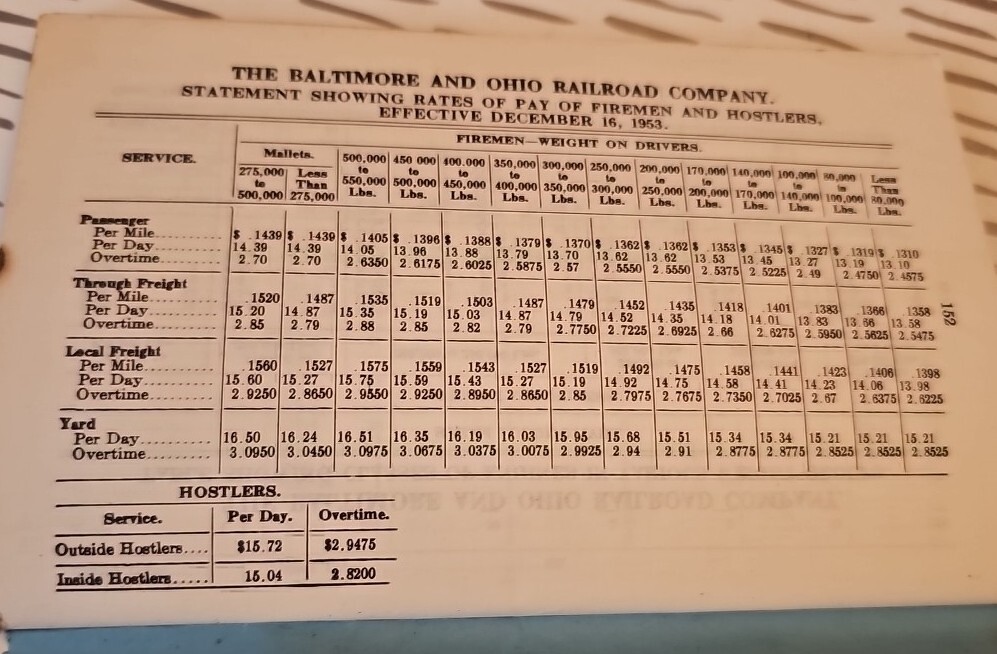 THE BALTIMORE AND OHIO RAILROAD COMPANY.
STATEMENT SHOWING RATES OF PAY OF FIREMEN AND HOSTLERS,
EFFECTIVE DECEMBER 16, 1953.
SERVICE. FIREMEN—WEIGHT ON DRIVERS.
Mallets. 500,000 450 000 400.000 350,000 300,000 250,000 200,000 170,000 140,000 100,000 80,000 Less
275,000 Less to to to to to to to to to to to Than
to Than 550,000 500,000 450,000 400,000 350,000 300,000 250,000 200,000 170,000 140,000 100,000 80,000
500,000 275,000 Lbs. Lbs. Lbs. Lbs. Lbs. Lbs. Lbs. Lbs. Lbs. Lbs. Lbs. Lbs.
Passenger
Per Mile.......... $ .1439 $ .1439 $ .1405 $ .1396 $ .1388 $ .1379 $ .1370 $ .1362 $ .1362 $ .1353 $ .1345 $ .1327 $ .1319 $ .1310
Per Day.......... 14.39 14.39 14.05 13.96 13.88 13.79 13.70 13.62 13.62 13.53 13.45 13.27 13.19 13.10
Overtime.......... 2.70 2.70 2.6350 2.6175 2.6025 2.5875 2.57 2.5550 2.5550 2.5375 2.5225 2.49 2.4750 2.4575
Through Freight
Per Mile.......... .1520 .1487 .1535 .1519 .1503 .1487 .1479 .1452 .1435 .1418 .1401 .1383 .1366 .1358
Per Day.......... 15.20 14.87 15.35 15.19 15.03 14.87 14.79 14.52 14.35 14.18 14.01 13.83 13.66 13.58
Overtime.......... 2.85 2.79 2.88 2.85 2.82 2.79 2.7750 2.7225 2.6925 2.66 2.6275 2.5950 2.5625 2.5475
152
Local Freight
Per Mile.......... .1560 .1527 .1575 .1559 .1543 .1527 .1519 .1492 .1475 .1458 .1441 .1423 .1406 .1398
Per Day.......... 15.60 15.27 15.75 15.59 15.43 15.27 15.19 14.92 14.75 14.58 14.41 14.23 14.06 13.98
Overtime.......... 2.9250 2.8650 2.9550 2.9250 2.8950 2.8650 2.85 2.7975 2.7675 2.7350 2.7025 2.67 2.6375 2.6225
Yard
Per Day.......... 16.50 16.24 16.51 16.35 16.19 16.03 15.95 15.68 15.51 15.34 15.34 15.21 15.21 15.21
Overtime......... 3.0950 3.0450 3.0975 3.0675 3.0375 3.0075 2.9925 2.94 2.91 2.8775 2.8775 2.8525 2.8525 2.8525
HOSTLERS.
Service. Per Day. Overtime.
Outside Hostlers.... $15.72 $2.9475
Inside Hostlers..... 15.04 2.8200